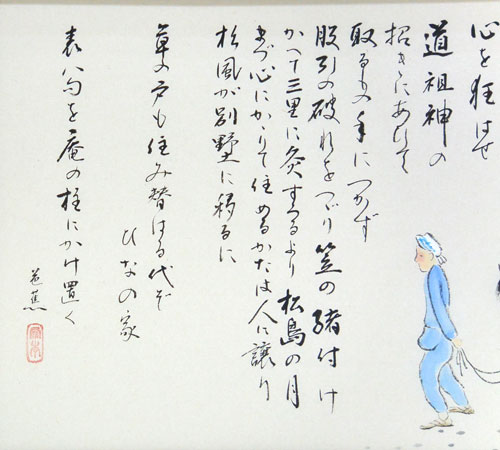 心を狂はせ
道祖神の
招きにあひて
取るもの手につかず
股引の破れをつづり笠の緒付け
かへて三里に灸すうるより松島の月
まづ心にかゝりて住めるかたは人に譲り
杉風が別墅に移るに
草の戸も住み替はる代ぞ
ひなの家
表八句を庵の柱にかけ置く
芭蕉